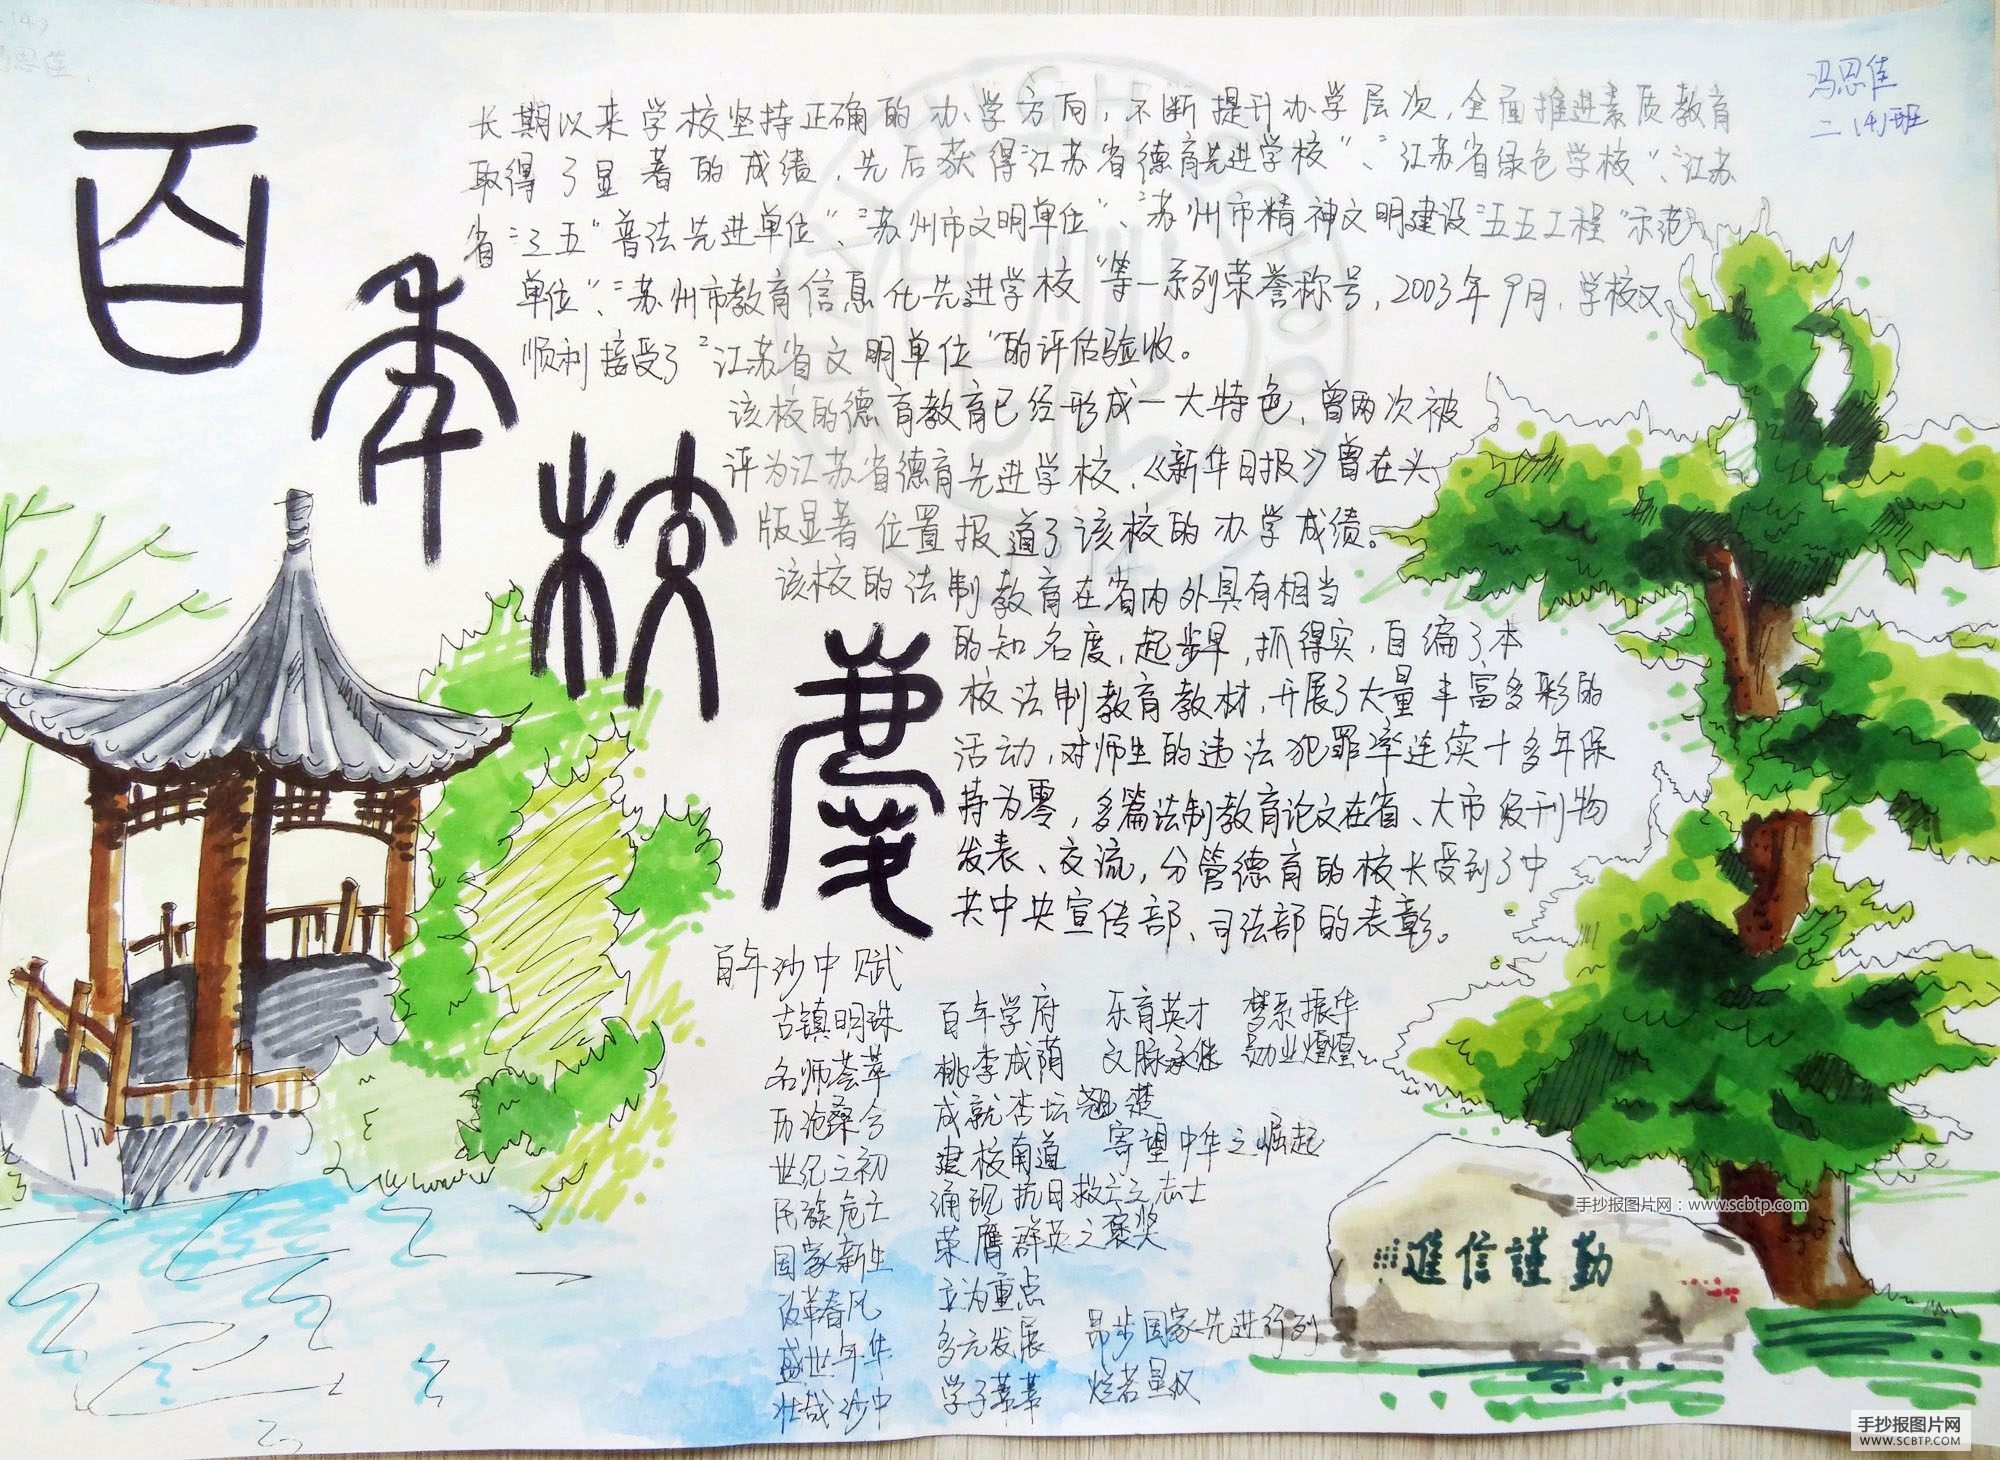 冯思佳
二(4)班
百年校庆
长期以来学校坚持正确的办学方向，不断提升办学层次，全面推进素质教育
取得了显著的成绩，先后获得“江苏省德育先进学校”、“江苏省绿色学校”、“江苏
省“三五”普法先进单位”、“苏州市文明单位”、“苏州市精神文明建设“五五工程”示范
单位”、“苏州市教育信息化先进学校”等一系列荣誉称号，2003年9月，学校又
顺利接受了“江苏省文明单位”的评估验收。
该校的德育教育已经形成一大特色，曾两次被
评为江苏省德育先进学校，《新华日报》曾在头
版显著位置报道了该校的办学成绩。
该校的法制教育在省内外具有相当
的知名度，起步早，抓得实，自编了本
校法制教育教材，开展了大量丰富多彩的
活动，对师生的违法犯罪率连续十多年保
持为零，多篇法制教育论文在省、大市级刊物
发表、交流，分管德育的校长受到了中
共中央宣传部、司法部的表彰。
百年沙中赋
古镇明珠 百年学府 乐育英才 梦系振华
名师荟萃 桃李成荫 文脉承继 勋业煌煌
历沧桑兮 成就杏坛翘楚
世纪之初 建校南道 寄望中华之崛起
民族危亡 涌现抗日救亡之志士
国家新生 荣膺群英之褒奖
改革春风 立为重点
盛世年华 多元发展 昂步国家先进行列
壮哉沙中 学子莘莘 烂若星汉
進信謹勤
手抄报图片网：www.scbtp.com
手抄报图片网
WWW.SCBTP.COM